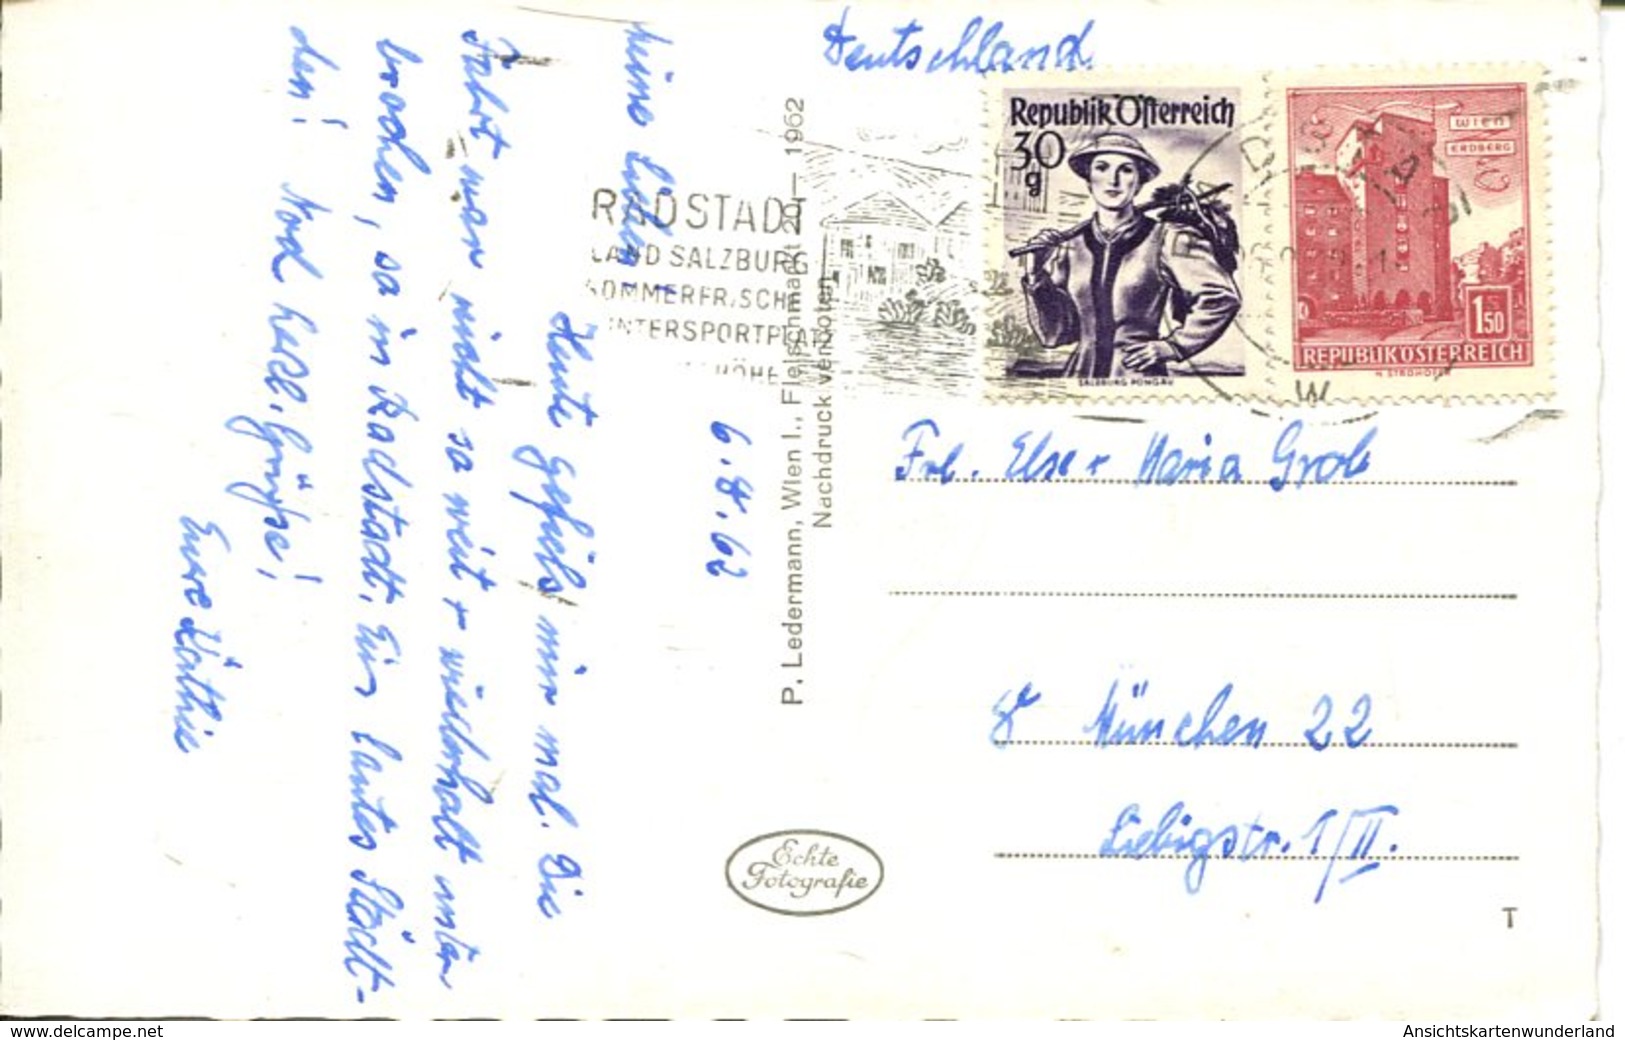 Deutschland
Republik Österreich
30
g
SALZBURG PONGAU
WIEN
ERDBERG
1
50
REPUBLIK ÖSTERREICH
RADSTADT
LAND SALZBURG
SOMMERFRISCHE
WINTERSPORTPLATZ
HÖHE
P. Ledermann, Wien I., Fleischmarkt 20 — 1962
Nachdruck verboten
6.8.62
Meine Lieben!
Heute gefiels mir mal. Die
Fahrt war nicht so weit + wiederholt unter-
brochen, so in Radstadt. Ein lautes Städt-
chen! Herzl. Grüße!
Eure Käthie
Frl. Else + Maria Grob
8 München 22
Liebigstr. 1/II.
Echte
Fotografie
T
www.delcampe.net
Ansichtskartenwunderland